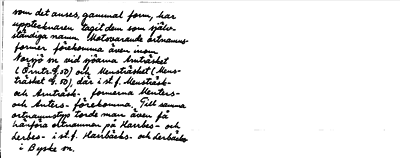 som det anses, gammal form, har
upptecknaren tagit dem som själv-
ständiga namn. Motsvarande ortnamns-
former förekomma även inom
Norsjö sn vid sjöarna Arnträsket
och Mensträsket (Mens-
träsket), där i st. f. Mensträsk-
och Arnträsk- formerna Menters-
och Arnters- förekomma. Till samma
ortnamnstyp torde man även få
hänföra ortnamnen på Harrbes- och
Lerbes- i st. f. Harrbäcks- och Lerbäcks-
i Byske sn.